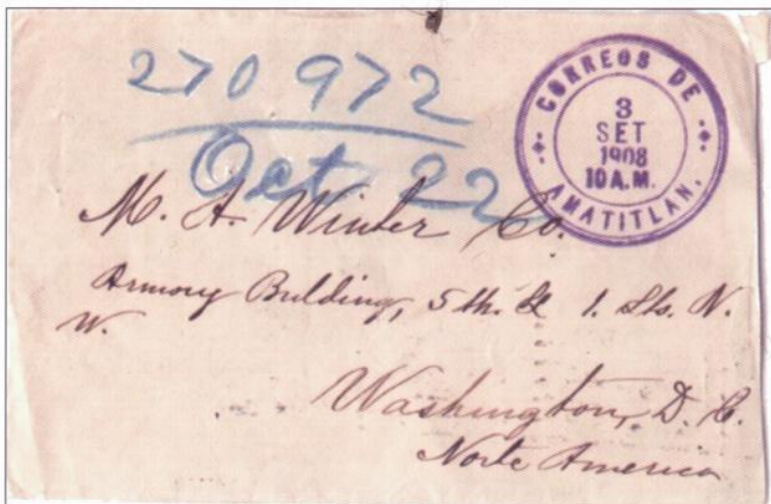 270 972
Oct 22
CORREOS DE
3
SET
1908
10 A.M.
AMATITLAN.
M. A. Winter Co.
Armory Bulding, 5 th. & 1. Sts. N.
W.
Washington, D. C.
Norte America